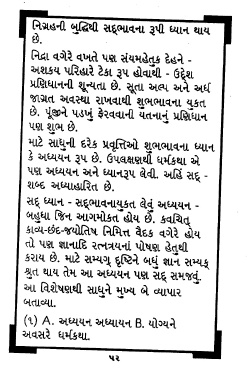 નિગ્રહની બુદ્ધિથી સદ્ભાવના રૂપી ધ્યાન થાય
છે.
નિદ્રા વગેરે વખતે પણ સંયમહેતુક દેહને -
અશક્ય પરિહારે ટેકા રૂપ હોવાથી - ઉદ્દેશ
પ્રણિધાનની શૂન્યતા છે. સૂતા અલ્પ અને અર્ધ
જાગ્રત અવસ્થા રાખવાથી શુભભાવના યુક્ત
છે. પૂંજીને પડખું ફેરવવાની યતનાનું પ્રણિધાન
પણ શુભ છે.
માટે સાધુની દરેક પ્રવૃત્તિઓ શુભભાવના ધ્યાન
કે અધ્યયન રૂપ છે. ઉપલક્ષણથી ધર્મકથા એ
પણ અધ્યયન અને ધ્યાનરૂપ લેવી. અહિં સદ્ -
શબ્દ અધ્યાહારિત છે.
સદ્ ધ્યાન - સદ્ભાવનાયુક્ત લેવું અધ્યયન -
બહુધા જિન આગમોક્ત હોય છે. કવચિત્
કાવ્ય-છંદ-જ્યોતિષ નિમિત્ત વૈદક વગેરે હોય
તો પણ જ્ઞાનાદિ રત્નત્રયનાં પોષણ હેતુથી
કરાય છે. માટે સમ્યગ્ દૃષ્ટિને બધું જ્ઞાન સમ્યક્
શ્રુત થાય તેમ આ અધ્યયન પણ સદ્ સમજવું.
આ વિશેષણથી સાધુને મુખ્ય બે વ્યાપાર
બતાવ્યા.
(૧) A. અધ્યયન અધ્યાયન B. યોગ્યને
અવસરે ધર્મકથા.
૫૨